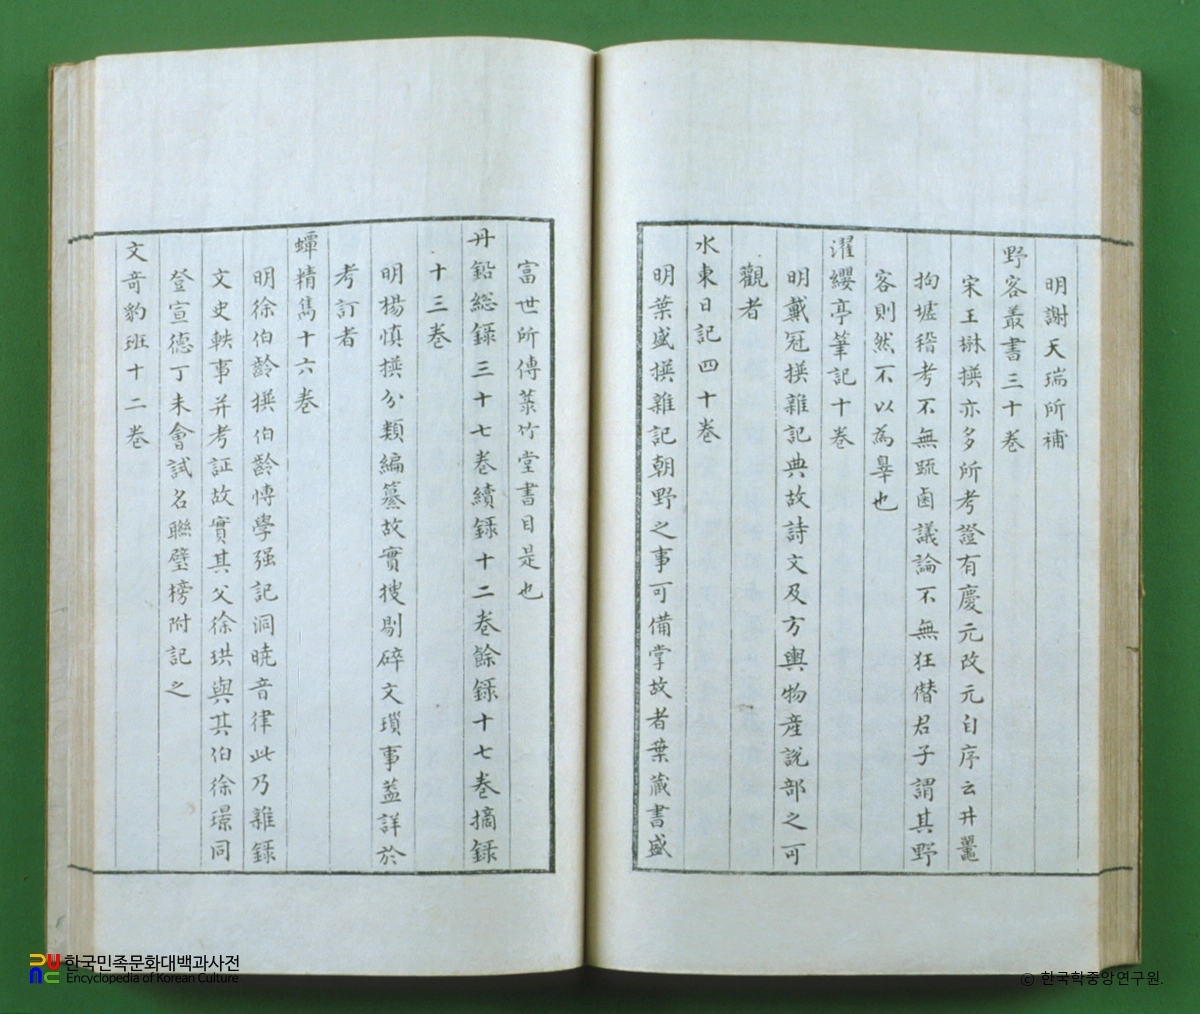 明謝天瑞所補
野客叢書三十卷
宋王楙撰亦多所考證有慶元改元自序云井鼃
拘墟稽考不無疏鹵議論不無狂僭君子謂其野
客則然不以為辠也
濯纓亭筆記十卷
明戴冠撰雜記典故詩文及方輿物產說部之可
觀者
水東日記四十卷
明葉盛撰雜記朝野之事可備掌故者葉藏書盛
富世所傳菉竹堂書目是也
丹鉛総錄三十七卷續錄十二卷餘錄十七卷摘錄
十三卷
明楊慎撰分類編纂故實搜剔碎文瑣事蓋詳於
考訂者
蟫精雋十六卷
明徐伯齡撰伯齡愽學强記洞曉音律此乃雜錄
文史軼事并考証故實其父徐珙與其伯徐璟同
登宣德丁未會試名聯璧榜附記之
文竒豹班十二卷
한국민족문화대백과사전
Encyclopedia of Korean Culture
ⓒ 한국학중앙연구원.